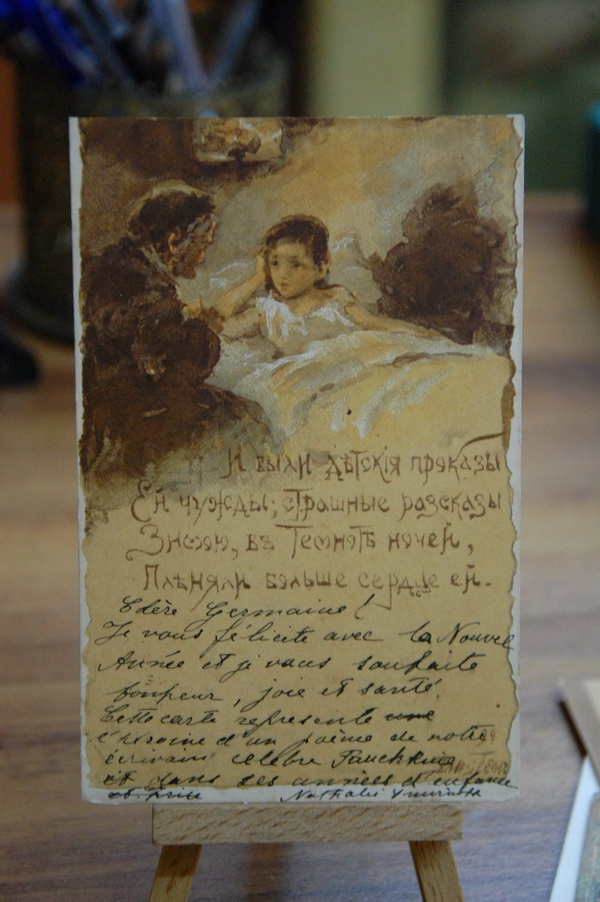 И были дѣтскія проказы
Ей чужды; страшные разсказы
Зимою, въ темнотѣ ночей,
Плѣняли больше сердце ей.
Chère Germaine!
Je vous félicite avec la Nouvel
Année et je vous souhaite
bonheur, joie et santé.
Cette carte represente une
l'éroine d'un poème de notre
écrivain célèbre Pouchkine
et dans ses années d'enfance
Nathalie Smirnova